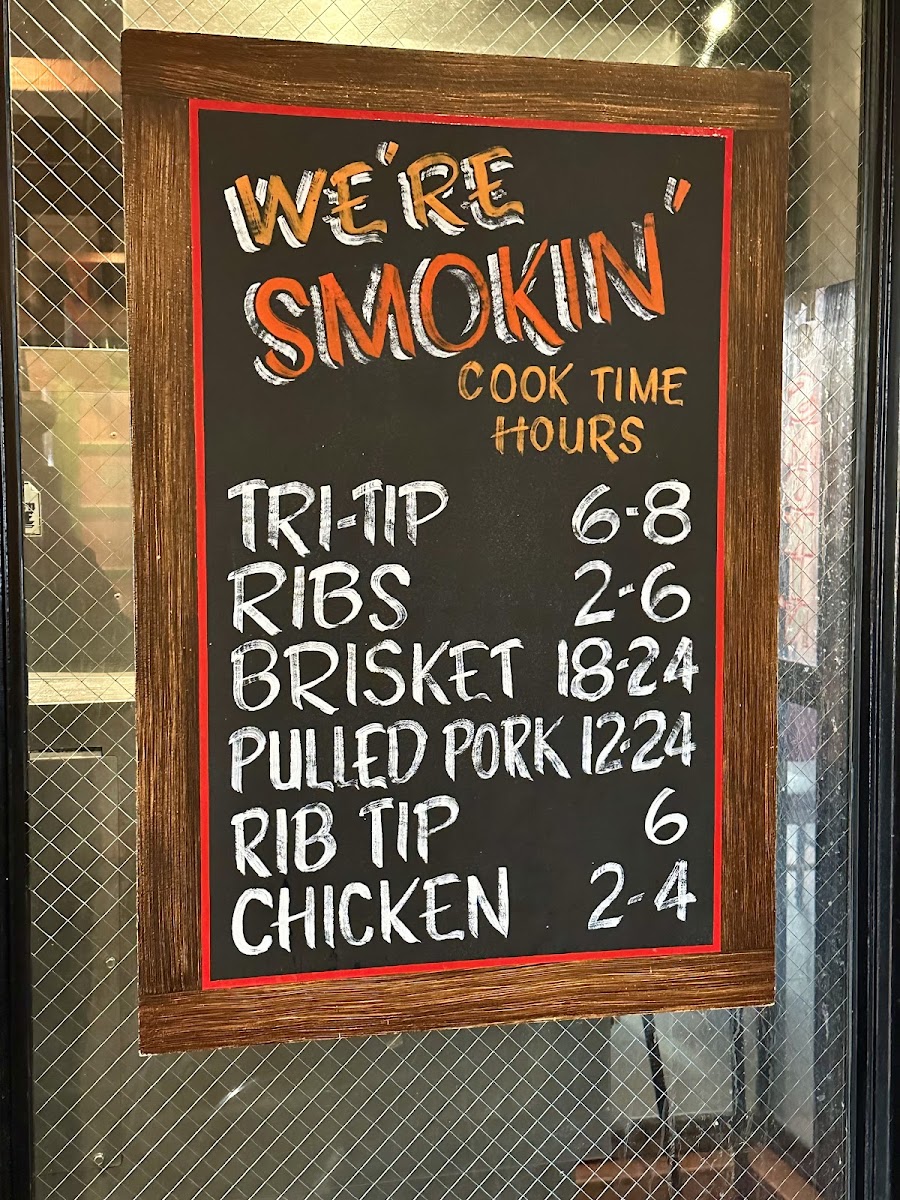 WE'RE
SMOKIN'
COOK TIME
HOURS
TRI-TIP 6-8
RIBS 2-6
BRISKET 18-24
PULLED PORK 12-24
RIB TIP 6
CHICKEN 2-4